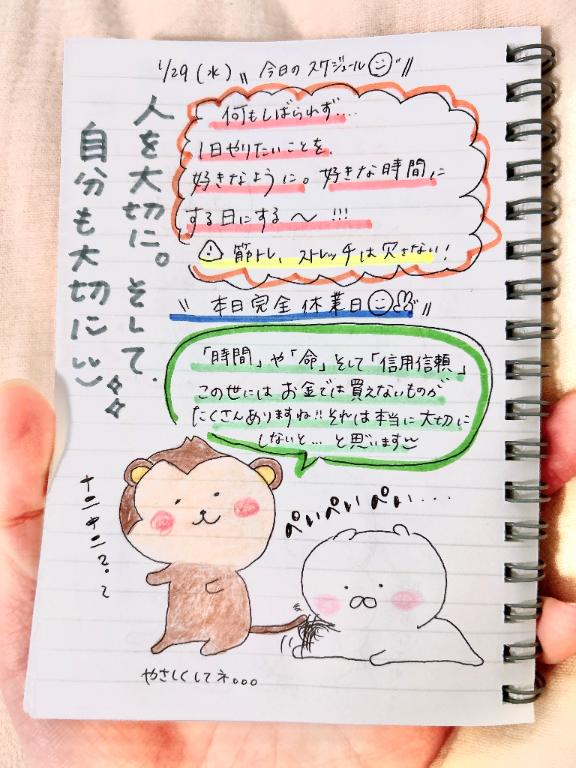 1/29(水) 〝今日のスケジュール〟
人を大切に。そして、
自分も大切に
何もしばられず....
1日やりたいことを、
好きなように。好きな時間に
する日にする〜!!!
筋トレ、ストレッチは欠さない!
〝本日完全休業日〟
「時間」や「命」そして「信用信頼」
この世にはお金では買えないものが
たくさんありますね!!それは本当に大切に
しないと...と思います
ナニナニ?
ぺぃぺぃぺぃ...
やさしくしてネ。。。